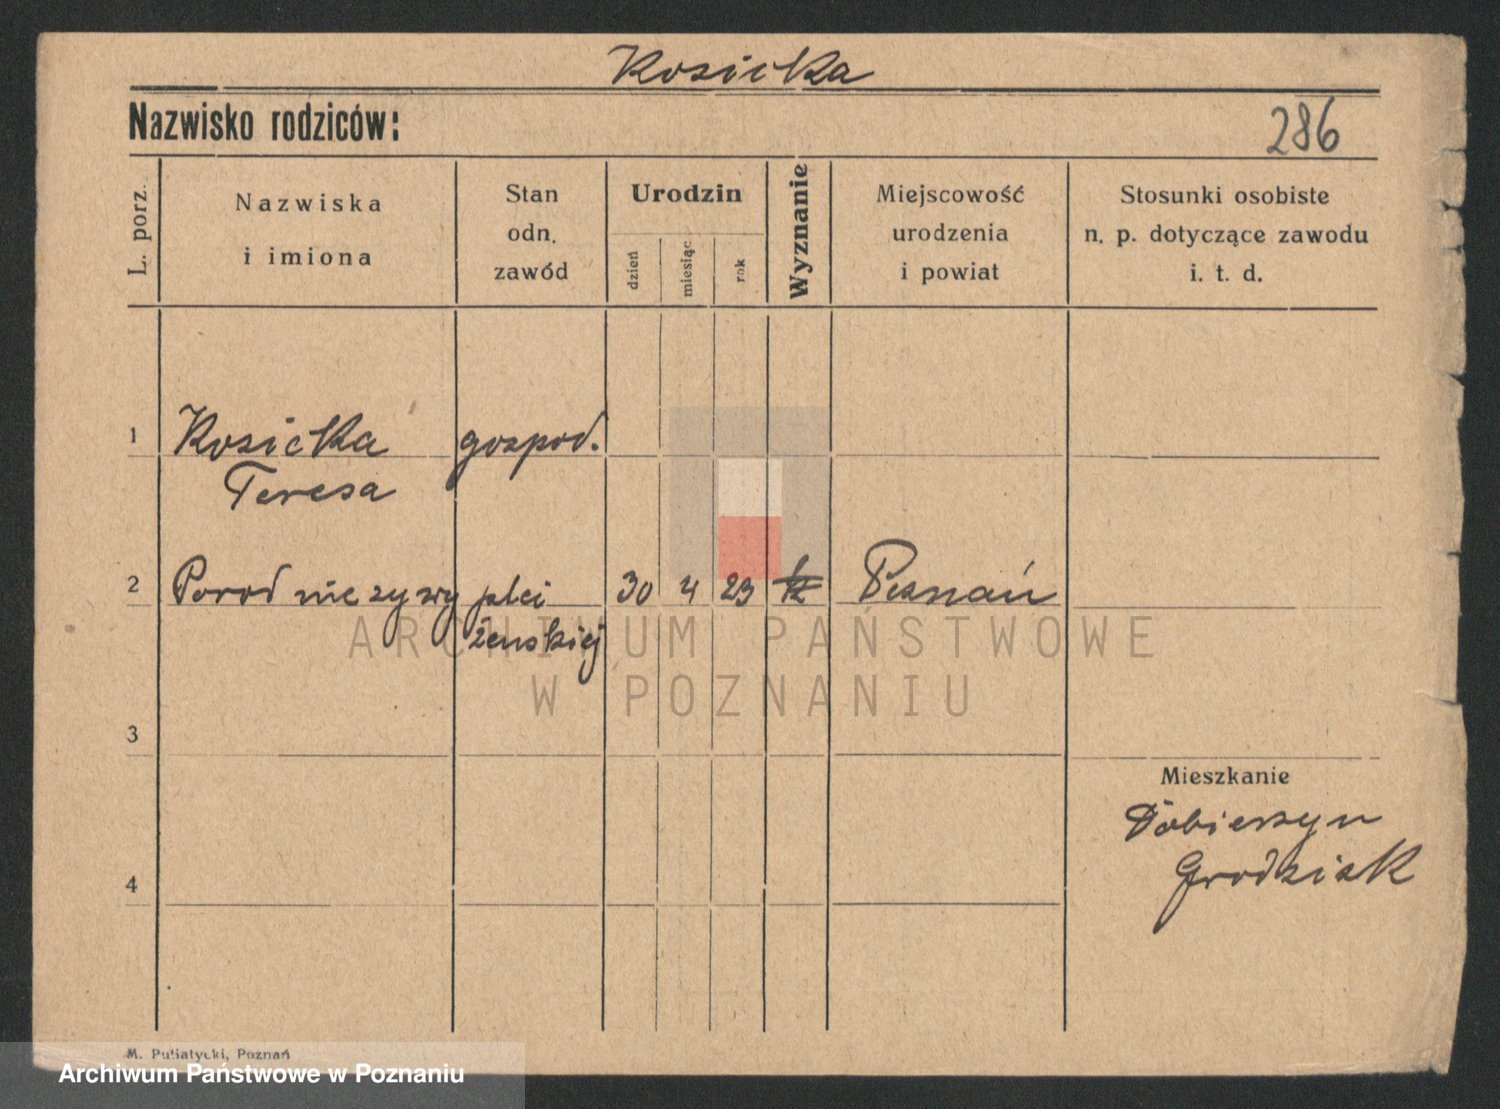 Kosicka
Nazwisko rodziców:
286
L. porz.
Nazwiska
i imiona
Stan
odn.
zawód
Urodzin
dzień
miesiąc
rok
Wyznanie
Miejscowość
urodzenia
i powiat
Stosunki osobiste
n. p. dotyczące zawodu
i. t. d.
1 Kosicka gospod.
Teresa
2 Porod nieżywy płci 30 4 23 Poznań
żenskiej
ARCHIWUM PAŃSTWOWE
W POZNANIU
3
Mieszkanie
Dobieszyn
Grodzisk
4
M. Putiatycki, Poznań
Archiwum Państwowe w Poznaniu